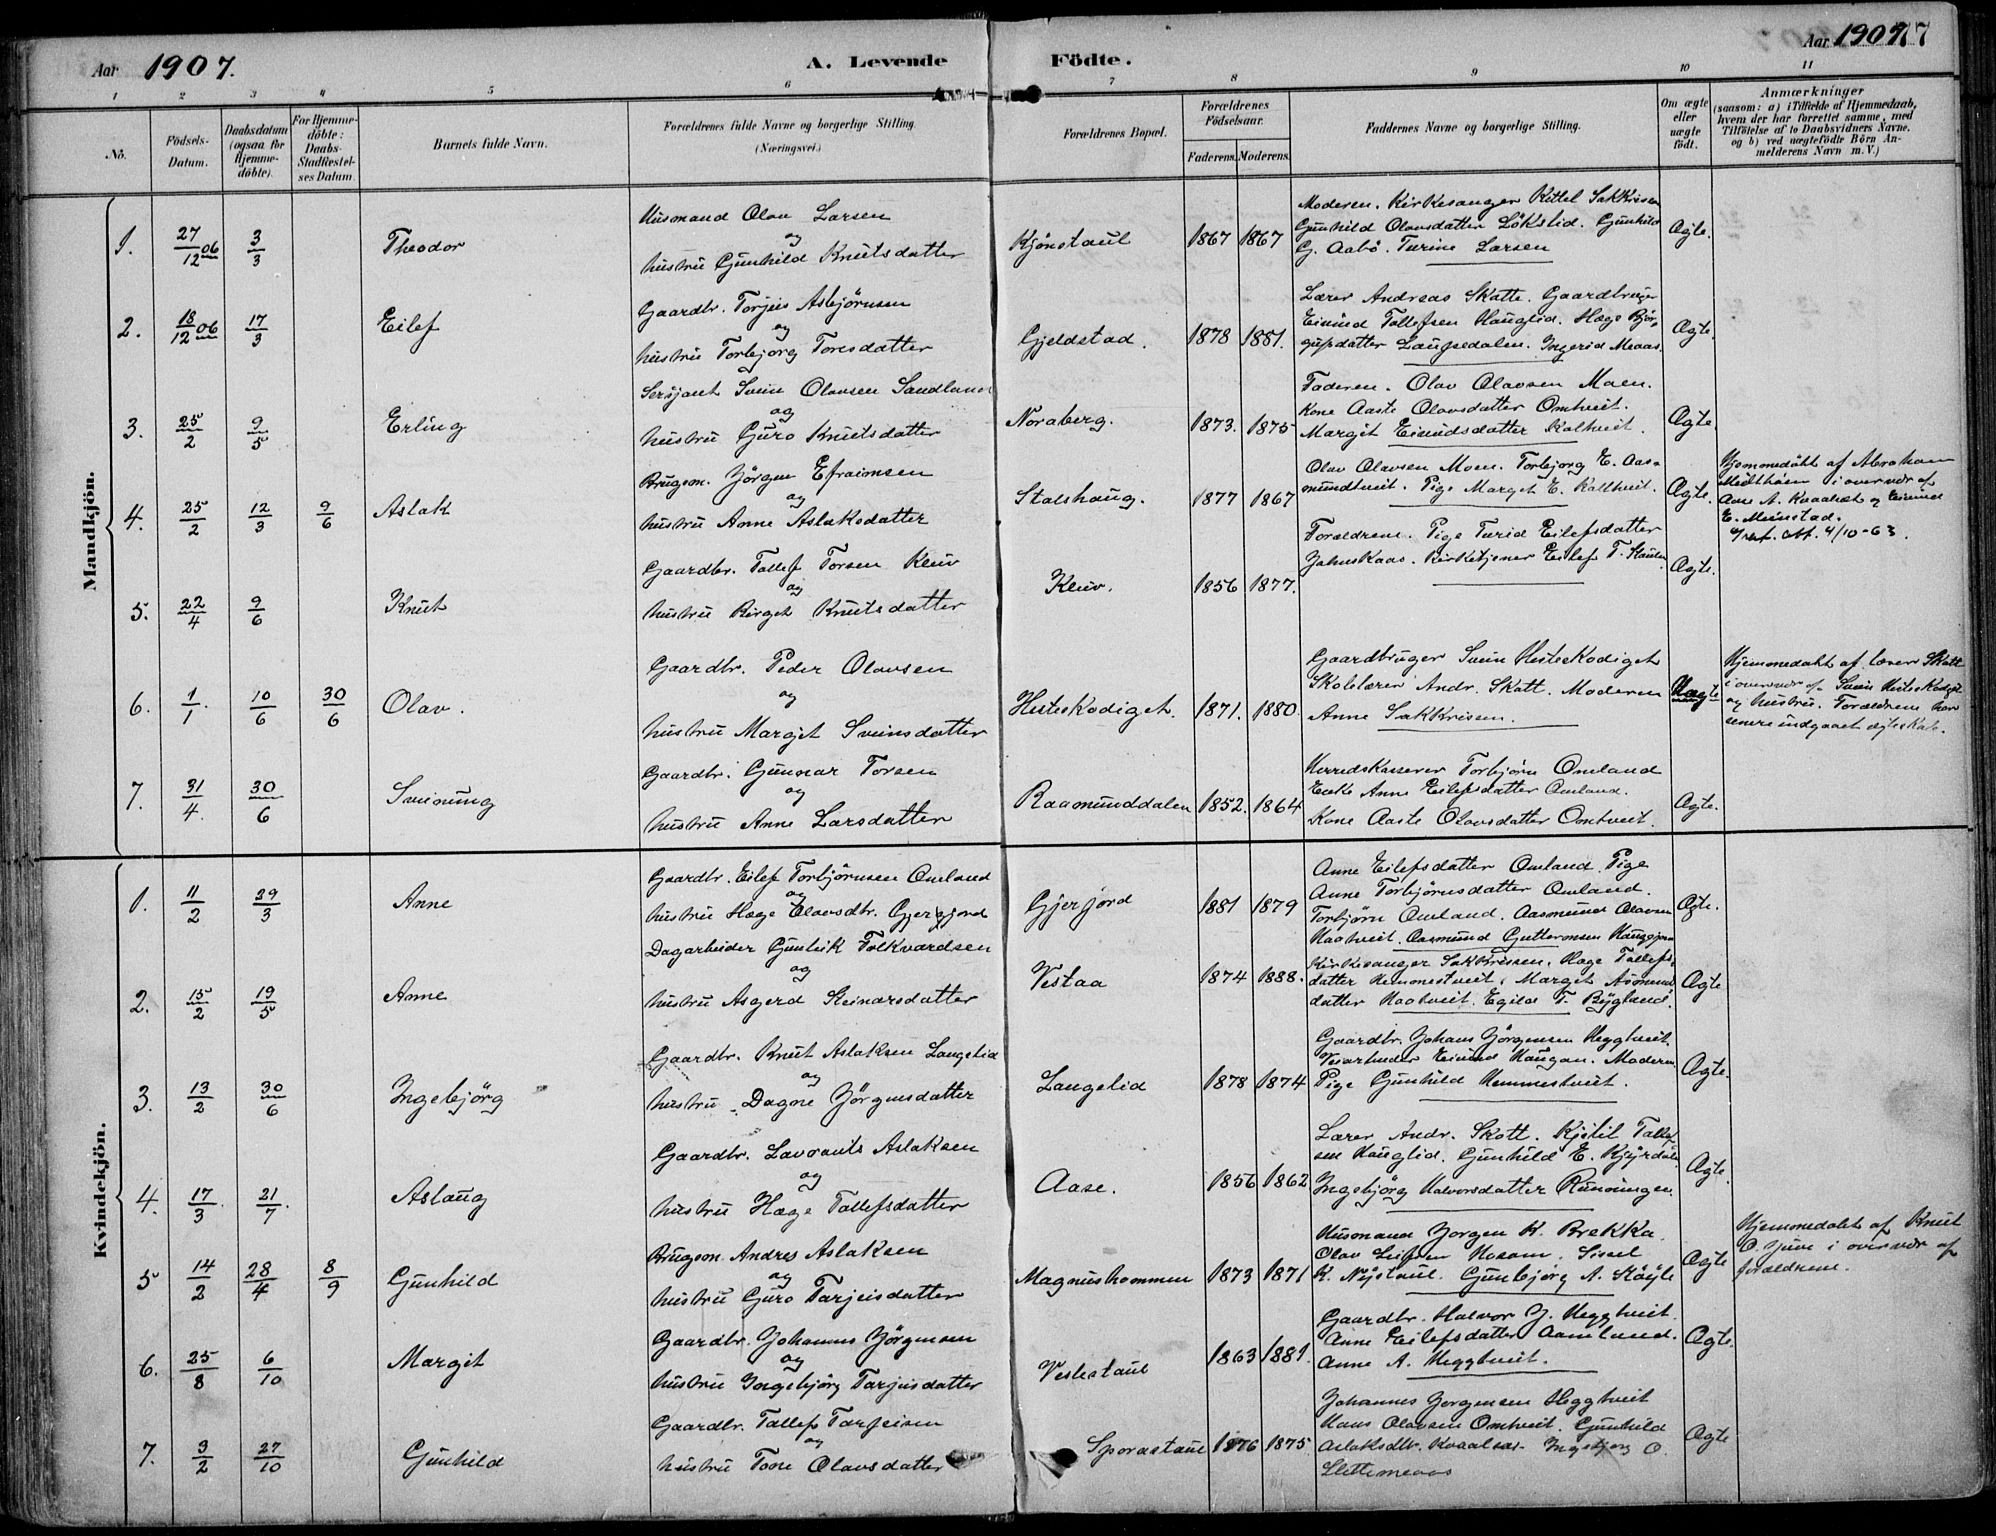 Aar 1907.
A. Levende Födte.
Aar 1907 77
1 2 3 4 5 6 7 8 9 10 11
No.
Födsels-Datum.
Daabsdatum (ogsaa for Hjemme-döbte).
For Hjemme-döbte: Daabs-Stadfæstel-ses Datum.
Barnets fulde Navn.
Forældrenes fulde Navne og borgerlige Stilling. (Næringsvei.)
Forældrenes Bopæl.
Forældrenes Födselsaar.
Faderens. Moderens.
Faddernes Navne og borgerlige Stilling.
Om ægte eller uægte födt.
Anmærkninger
(saasom: a) i Tilfælde af Hjemmedaab, hvem der har forrettet samme, med Tilföielse af to Daabsvidners Navne, og b) ved uægtefödte Börn An-melderens Navn m. V.)
Mandkjön.
1. 27/12 06 3/3 Theodor
Husmand Olav Larsen
og
hustru Gunhild Knutsdatter
Kjönstaul 1867 1867
Moderen. Kirkesanger Kittel Sakkrisen
Gunhild Olavsdatter Lökslid. Gunhild
G. Aabö. Turine Larsen
Ægte.
2. 18/12 06 17/3 Eilef
Gaardbr. Torjus Asbjörnsen
og
hustru Torbjorg Toresdatter
Gjeldstad. 1878 1881.
Lærer Andreas Skatte. Gaardbruger
Eivind Tallefsen Hauglid. Hæge Björ-
gufsdatter Ingerid Meaas.
Ægte.
3. 25/2 9/5 Erling
Sersjant Svein Olavsen Sandland
og
hustru Guro Knutsdatter
Noraberg. 1873. 1875
Faderen. Olav Olavsen Moen.
Kone Aaste Olavsdatter Omtveit.
Margit Eivindsdatter Kaltveit.
Ægte.
4. 25/2 12/3 9/6 Aslak
Brugsm. Jörgen Efraimsen
og
hustru Anne Aslaksdatter
Stalshaug. 1877 1867
Olav Olavsen Moen. Torbjorg E. Aas-
mundtveit. Pige Marget E. Kaltveit.
Ægte.
Hjemmedöbt af Abraham
i overvær af
Aane A. Kaaalsæt og Eivind
E. Meinstad.
4/10-63.
5. 22/4 9/6 Knut
Gaardbr. Tallef Torsen Kleiv
og
hustru Birget Knutsdatter
Kleiv. 1856 1877.
Forældrene. Pige Turid Eilefsdatter
Jahnskaas. Kirketjener Eilef T.
Ægte.
6. 1/1. 10/6 30/6 Olav.
Gaardbr. Peder Olavsen
og
hustru Margit Sveinsdatter
Hesteskodiget. 1871. 1880.
Gaardbruger Svein Hesteskodiget
Skolelærer Andr. Skatt. Moderen
Anne Sakkrisen.
Uægte
Hjemmedöbt af lærer Skatt
i overvær af Svein Hesteskodiget
og hustru. Forældrene har
senere indgaaet ægteskab.
7. 31/4. 30/6 Sveinung
Gaardbr. Gunnar Torsen
og
hustru Anne Larsdatter
Raamunddalen 1852. 1864
Herredskasserer Torbjörn Omland
Enke Anne Eilefsdatter Omland.
Kone Aaste Olavsdatter Omtveit.
Ægte.
Kvindekjön.
1. 11/2 29/3 Anne
Gaardbr. Eilef Torbjörnsen Omland
og
hustru Hæge Olavsdtr. Gjersjord
Gjerjord 1881 1879
Anne Eilefsdatter Omland. Pige
Anne Torbjörnsdatter Omland.
Torbjörn Omland. Aasmund Olavsen
Haatveit. Aasmund Guttormsen
Ægte.
2. 15/2 19/5 Anne
Dagarbeider Gunleik Folkvardsen
og
hustru Asgerd Steinarsdatter
Vestaa 1874 1888.
Kirkesanger Sakkrissen. Hæge Tallefs-
datter Hemmestveit. Margit Asmund-
datter Haatveit. Egild T. Bygland.
Ægte
3. 13/2 30/6 Ingebjörg
Gaardbr. Knut Aslaksen Langelid
og
hustru Dagne Jörgensdatter
Langelid 1878 1874
Gaardbr. Johans Jörgensen Heggtveit.
Veiarbeider Eivind Haugan. Moderen
Pige Gunhild Hemmestveit.
Ægte.
4. 17/3 21/7. Aslaug
Gaardbr. Lavrants Aslaksen
og
hustru Hæge Tallefsdatter
Aase. 1856 1862
Lærer Andr. Skatt. Kjetil Tallef-
sen Hauglid. Gunhild E.
Ingebjörg Halvorsdatter Runningen.
Ægte.
5 14/2 28/4 8/9 Gunhild
Brugsm. Andres Aslaksen
og
hustru Guro Tarjeisdatter
Magnushommen 1873 1871
Husmand Jorgen K. Brekka.
Olav Leifsen Mosam. Sissel
K. Nystaul. Gunbjörg A. Stöyle
Ægte
Hjemmedöbt af Knut
O. Juve i overvær af
forældrene.
6. 25/8 6/10 Margit
Gaardbr. Johannes Jörgensen
og
hustru Ingebjörg Tarjeisdatter
Veslestaul 1863 1881.
Gaardbr. Halvor J. Heggtveit.
Anne Eilefsdatter Aamland.
Anne A. Heggtveit.
Ægte.
7. 3/2 27/10 Gunhild
Gaardbr. Tallef Tarjeisen
og
hustru Tone Olavsdatter
Sporastaul 1876 1875
Johannes Jorgensen Heggtveit
Hans Olavsen Omtveit. Gunhild
Aslaksdtr. Kvaalsæt. Ingebjorg O.
Slettemeaas
Ægte